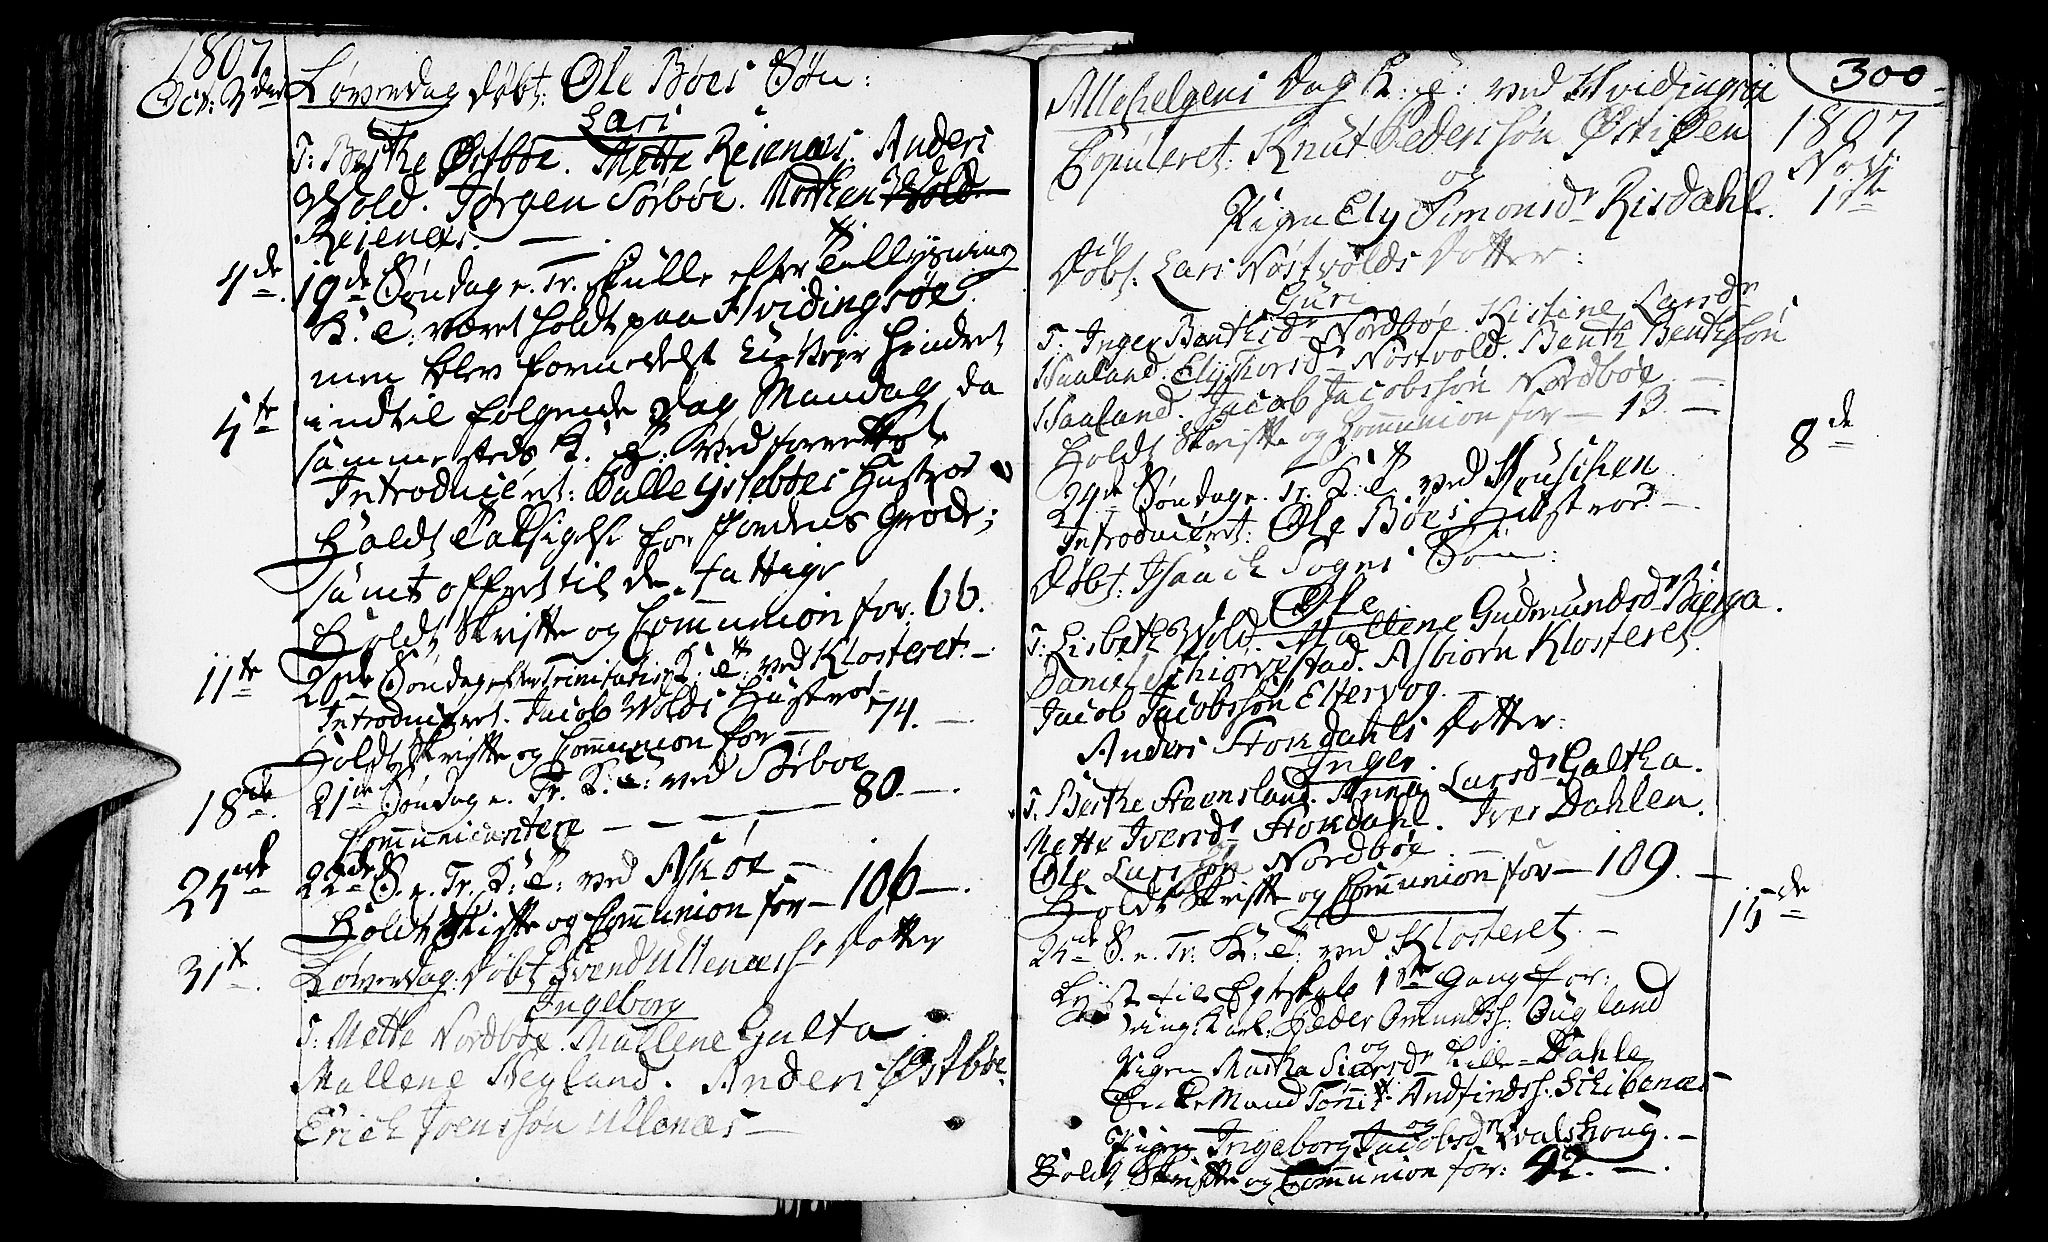 1807
Oct: 3die Løverdag døbt: Ole Bøes Søn:
Lars
T: Berthe Østbøe. Mette Reienæs. Anders
Wold. Jørgen Sørbøe. Morthen Wold
Reienæs. —
4de 19de Søndag e. Tr. skulle efter Tillysning
K: T: været holdt paa Hvidingsøe
men blev formedelst hindret
5te indtil følgende Dag Mandag, da
sammesteds K. T: blev forrettet
Introduceret: Palle Hustroe
Holdt Taksigelse for Jordens Grøde;
samt offret til de fattige
Holdt Skrifte og Communion for: 66.
11te 20de Søndag efter Trinitatis K: T: ved Klosteret. —
Introduceret. Jacob Wolds Hustroe
Holdt Skrifte og Communion for — 74. —
18de. 21de Søndag e. Tr. K: T: ved Sørboe
Communicantere — — — — 80. —.
25de 22de S. e. Tr. K: T: ved Askøe —
Holdt Skrifte og Communion for — 106 —.
31te. Løverdag: døbt Svend Ullenæss: Dotter
Ingeborg
T: Mette Nordbøe. Mallene Galta
Mallene Hegland. Anders Østbøe.
Erich Svensson Ullenæs —
300
1807
Nov:
1te
Allehelgens Dag K: T: ved Hvidingsøe
Copuleret: Knut Pedersøn Østiøen
og
Pigen Ely Simonsdr Risdahl.
Døbt: Lars Nøstvolds Dotter:
Guri
T: Inger Bentsdr Nordbøe. Kistine Larsdr
Haaland. Ely Thorsdr Nøstvold. Benth Benthsøn
Haaland. Jacob Jacobssøn Nordbøe. —
Holdt Skrifte og Communion for — 13. —
8de
24de Søndag e. Tr. K: T: ved
Introduceret: Ole Bøes Hustroe. —
Døbt: Isaach Sognes Søn:
Ole
T: Lisbeth Wold. Mallene Gudmundsdr Bierga.
Daniel Schiørvestad. Asbiørn Klosteret.
Jacob Jacobssøn Eltervog. —
Anders Stordahls Dotter:
Inger.
T. Berthe Steensland. Anna Larsdr Galtha.
Mette Iversdr Stordahl. Iver Dahlen.
Ole Larssøn Nordbøe
Holdt Skrifte og Communion for — 109. —
15de
25de S. e. Tr: K: T: ved Klosteret —
Lyst til Egteskab 1te Gang for:
Ung Karl: Peder Omundss: Østland
og
Pigen Martha Siversdr Lille-Dahle
Enke Mand Tønnis Andfindss: Schibenæs —
og
Pigen Ingeborg Jacobsdr Hvalshoug. —
Holdt Skrifte og Communion for: 42. —.